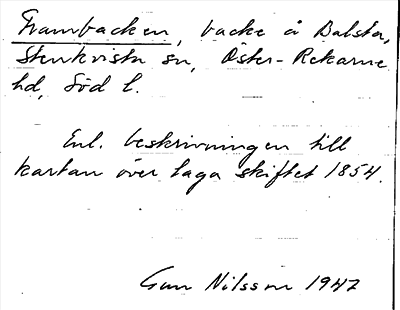 Frambacken, backe å Balsta,
Stenkvista sn, Öster-Rekarne
hd, Söd l.
Enl. beskrivningen till
kartan över laga skiftet 1854.
Gun Nilsson 1947